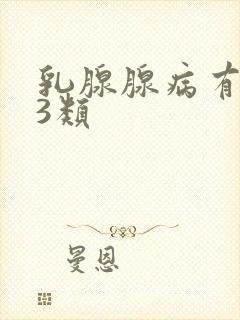 乳腺腺病有
3類
曼恩